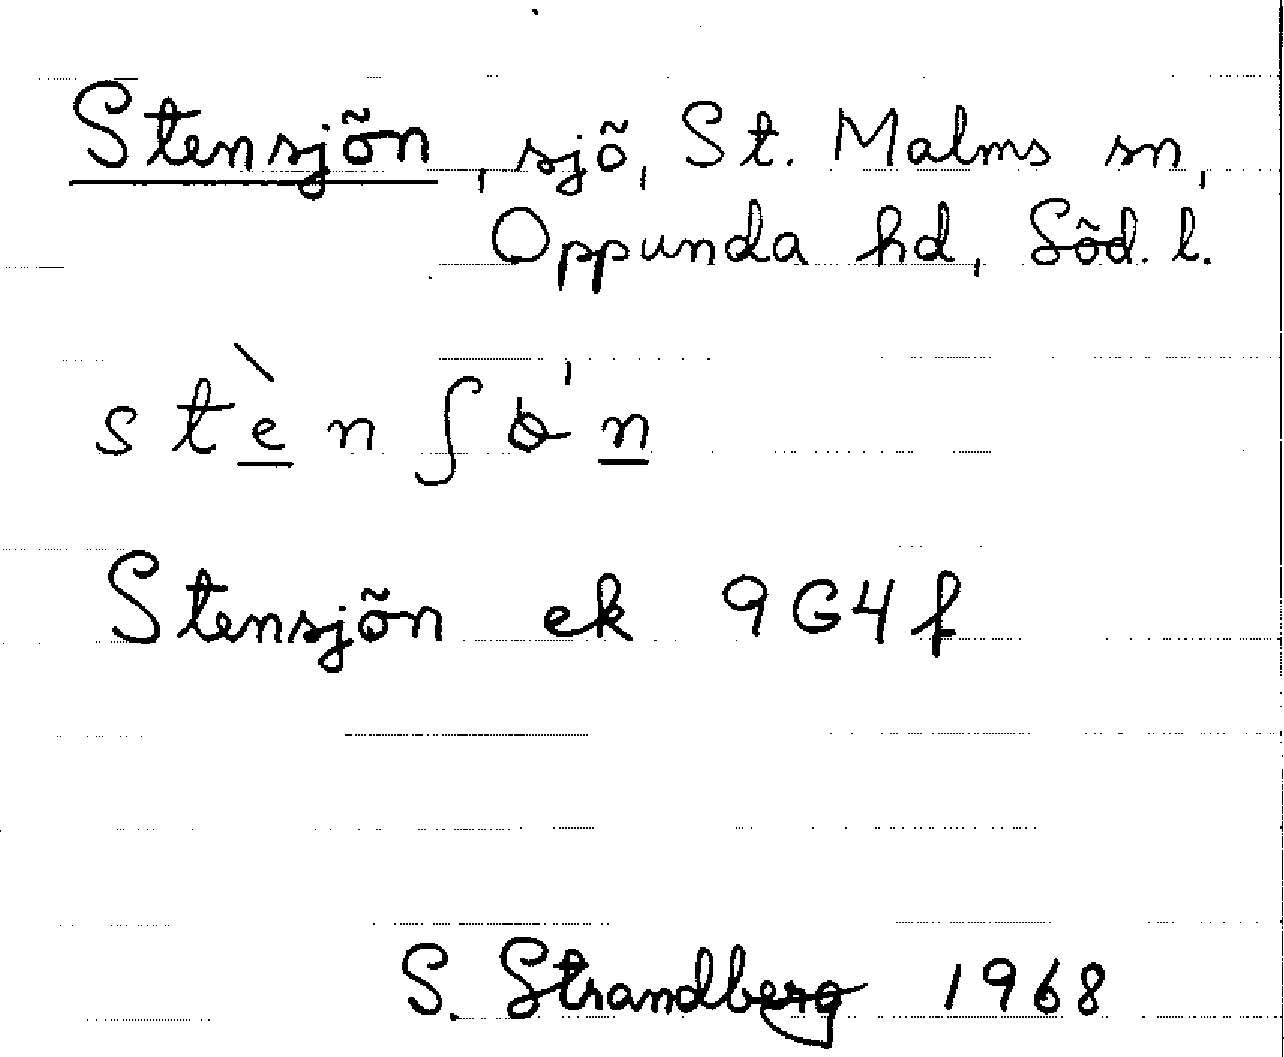 Stensjön, sjö, St. Malms sn,
Oppunda hd, Söd. l.
Stensjön ek 9G4f
S. Strandberg 1968